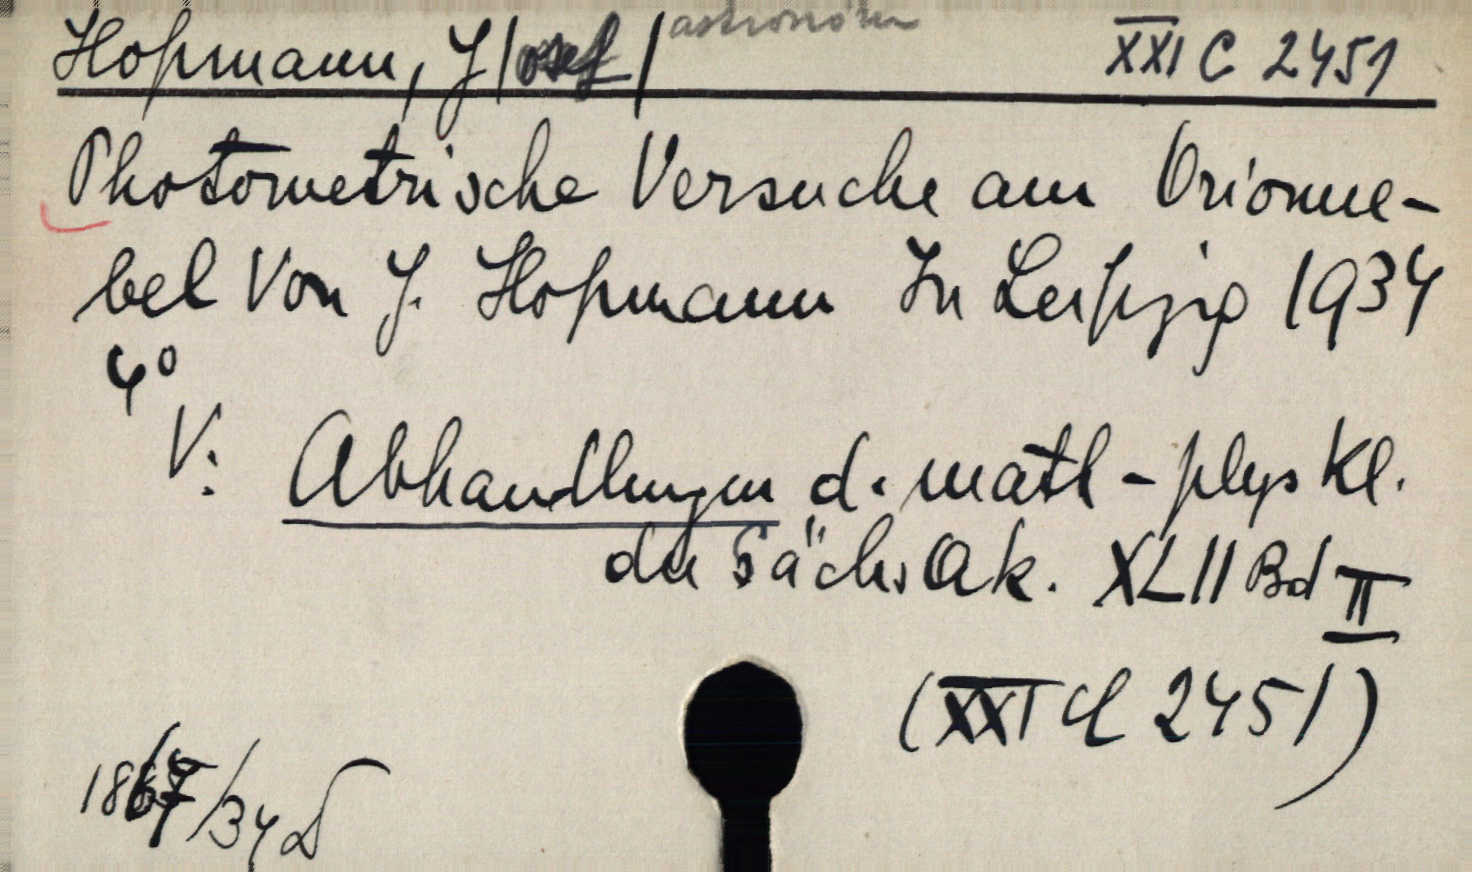 Hopmann, J/osef/ astronom XXI C 2451
Photometrische Versuche am Orionne-
bel Von J. Hopmann In Leipzig 1934
4°
V: Abhandlungen d. math-phys Kl.
der Sächs Ak. XLII Bd II
(XXI C 2451)
/34